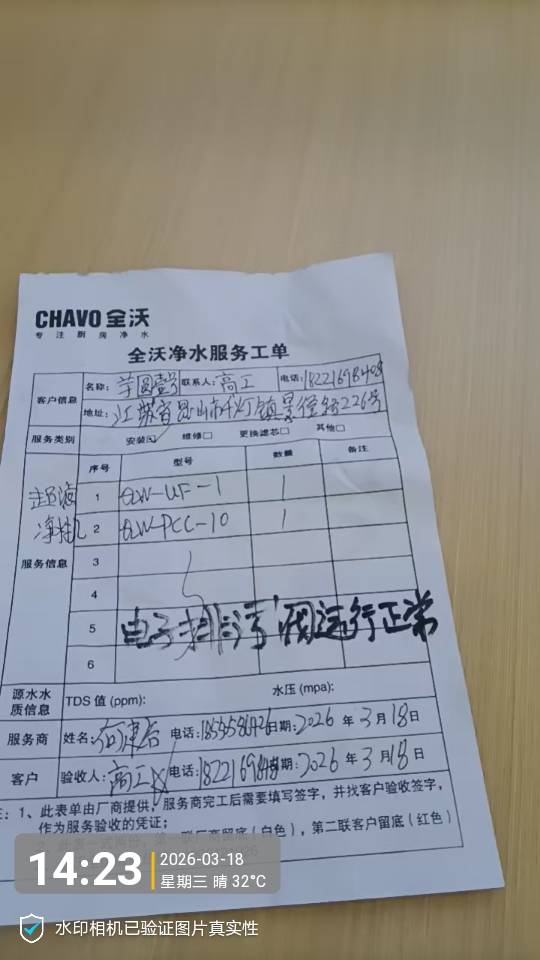 CHAVO 全沃
专注厨房净水
全沃净水服务工单
客户信息 名称: 芋圆壹号 联系人: 高工 电话:
地址: 江苏省昆山市千灯镇景径路226号
服务类别 安装☑ 维修□ 更换滤芯□ 其他□
序号 型号 数量 备注
超滤
1 QW-UF-1 1
净水机
2 QW-PCC-10 1
服务信息
3
4
5 电子排污阀运行正常
6
源水水质信息 TDS 值 (ppm): 水压 (mpa):
服务商 姓名: 电话: 日期: 2026 年 3 月 18 日
客户 验收人: 高工 电话: 日期: 2026 年 3 月 18 日
注: 1、此表单由厂商提供, 服务商完工后需要填写签字, 并找客户验收签字,
作为服务验收的凭证;
第一联厂商留底 (白色), 第二联客户留底 (红色)
14:23
2026-03-18
星期三 晴 32°C
水印相机已验证图片真实性